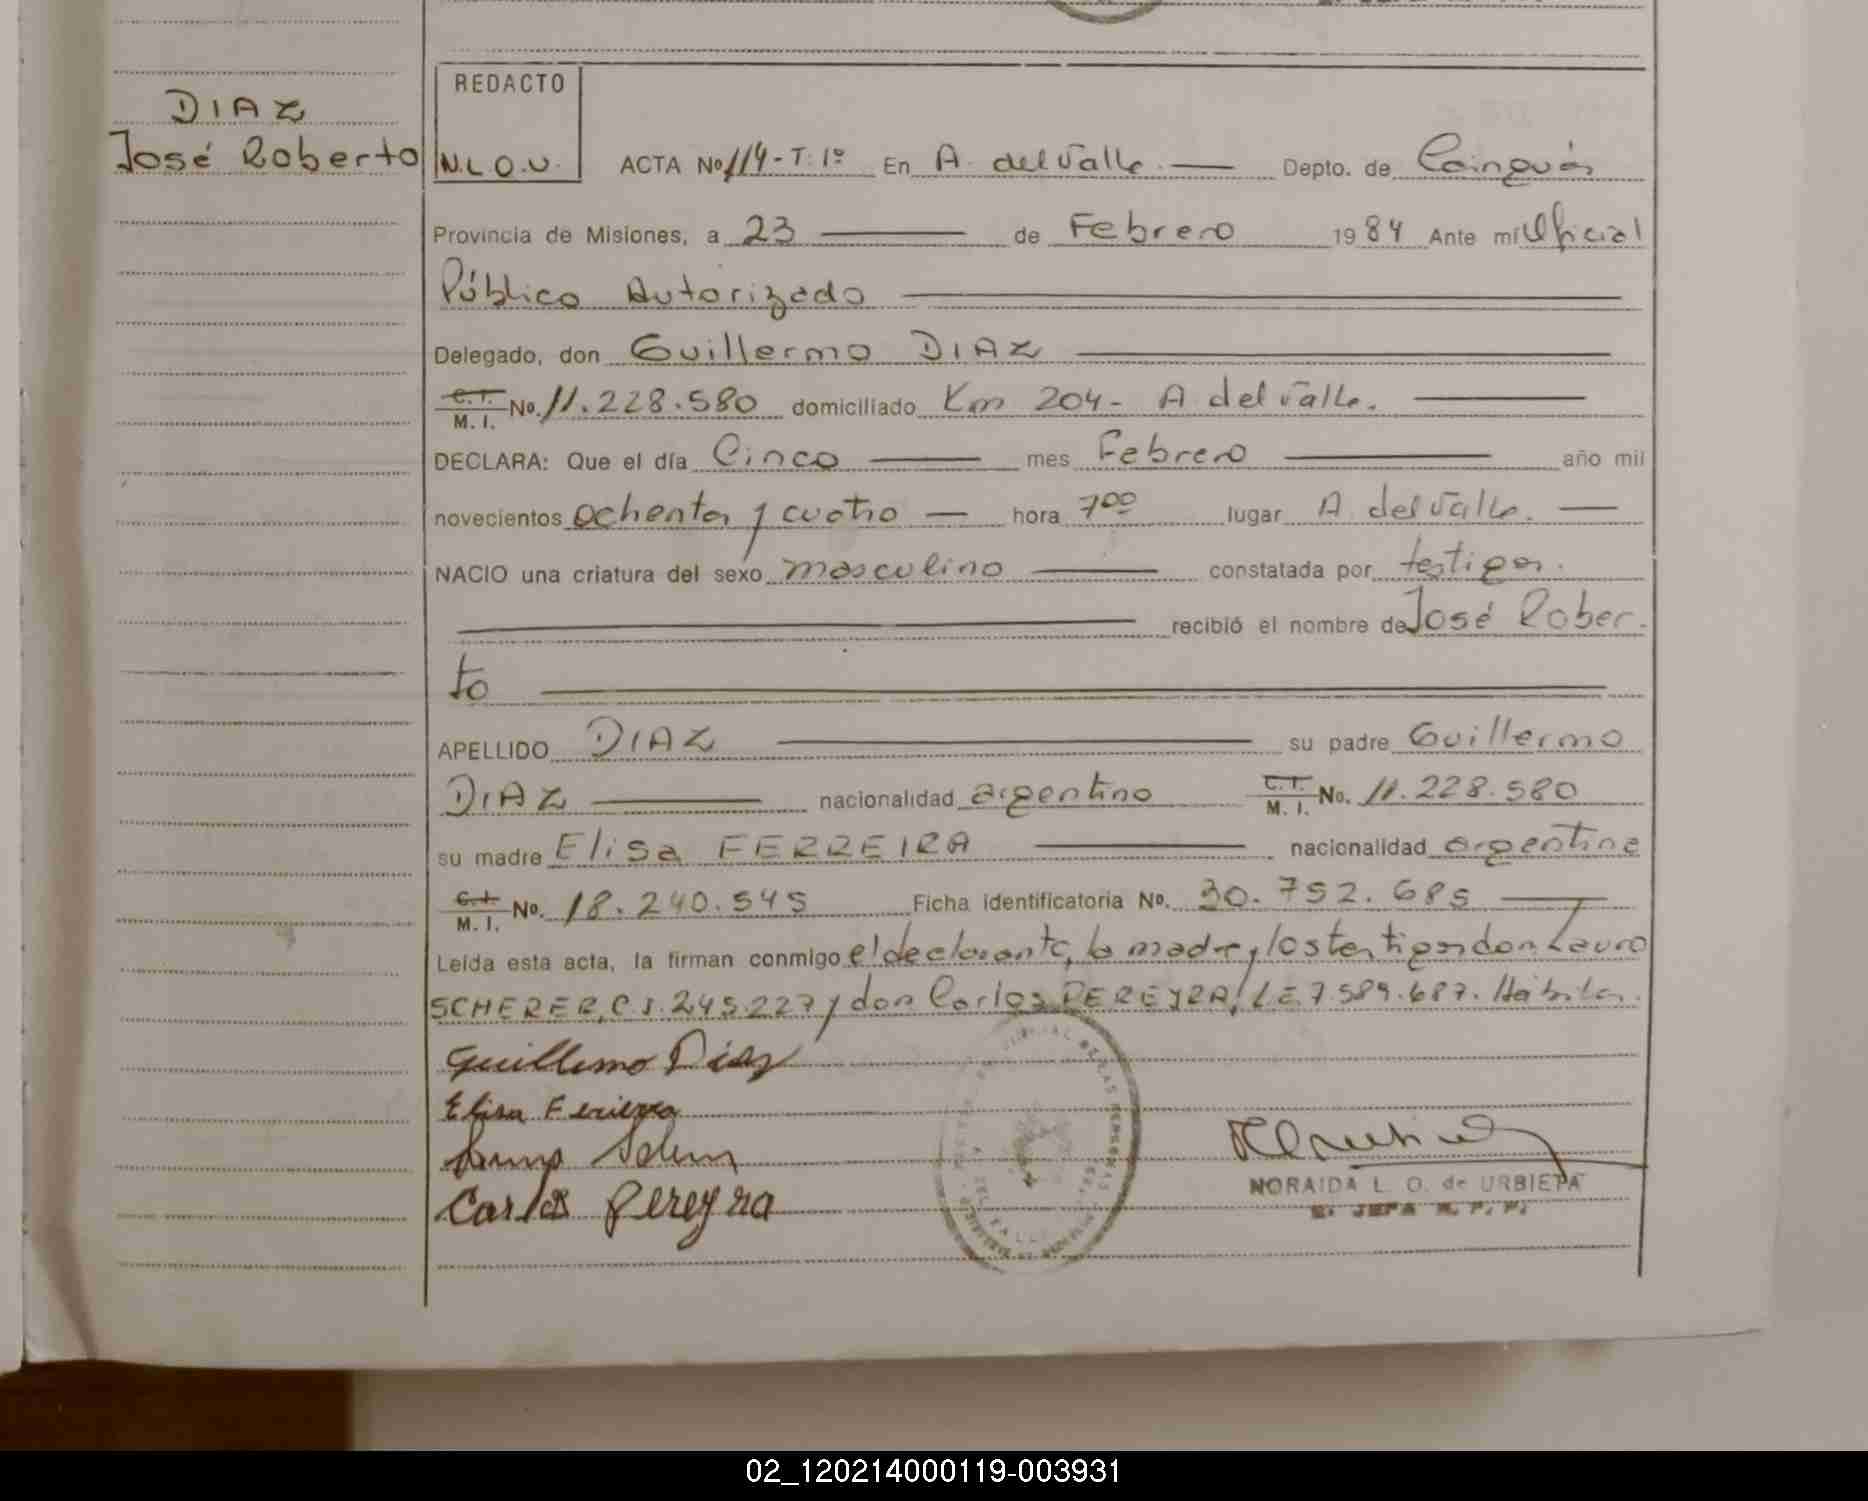 REDACTO
DIAZ
José Roberto
N.L.O.U. ACTA No 114-T:1º En A. del Valle Depto. de Cainguás
Provincia de Misiones, a 23 de Febrero 1984 Ante mí Oficial
Público Autorizado
Delegado, don Guillermo DIAZ
C.I. M.I. No. 11.228.580 domiciliado Km 204- A del Valle.
DECLARA: Que el día Cinco mes Febrero año mil
novecientos ochenta y cuatro hora 7 00 lugar A del Valle.
NACIO una criatura del sexo masculino constatada por testigos.
recibió el nombre de José Rober-
to
APELLIDO DIAZ su padre Guillermo
DIAZ nacionalidad argentino C.I. M.I. No. 11.228.580
su madre Elisa FERREIRA nacionalidad argentina
C.I. M.I. No. 18.240.545 Ficha identificatoria No. 30.752.685
Leída esta acta, la firman conmigo el declarante, la madre y los testigos don Lauro
SCHERER, C.I. 245.227 y don Carlos PEREYRA, L.E. 7.589.687. Hábiles.
Guillermo Díaz
Elisa Ferreira
Carlos Pereyra
NORAIDA L. O. de URBIETA
JEFA R. P. P.
02_120214000119-003931